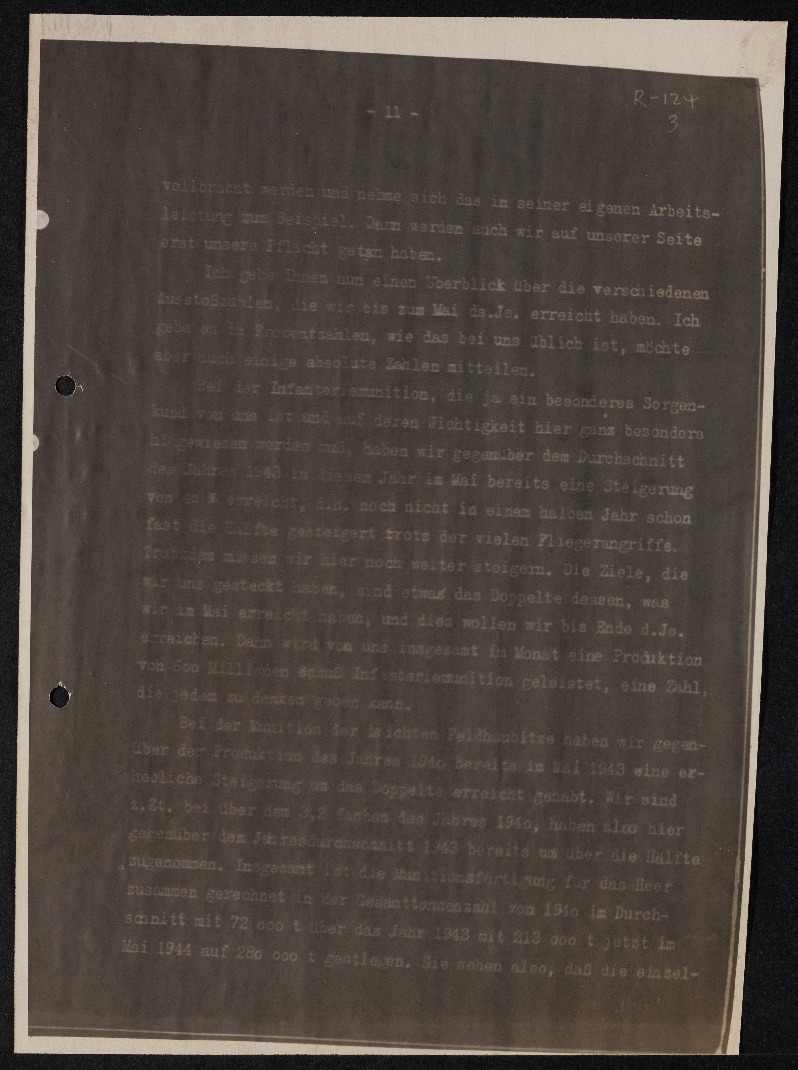 R-124
3
- 11 -
vollbracht werden und nehme sich das in seiner eigenen Arbeits-
leistung zum Beispiel. Dann werden auch wir auf unserer Seite
erst unsere Pflicht getan haben.
Ich gebe Ihnen nun einen Überblick über die verschiedenen
Ausstoßzahlen, die wir bis zum Mai ds.Js. erreicht haben. Ich
gebe es in Prozentzahlen, wie das bei uns üblich ist, möchte
aber auch einige absolute Zahlen mitteilen.
Bei der Infanteriemunition, die ja ein besonderes Sorgen-
kund von uns ist und auf deren Wichtigkeit hier ganz besonders
hingewiesen werden muß, haben wir gegenüber dem Durchschnitt
des Jahres 1943 in diesem Jahr im Mai bereits eine Steigerung
von % erreicht, d.h. noch nicht in einem halben Jahr schon
fast die Hälfte gesteigert trotz der vielen Fliegerangriffe.
Trotzdem müssen wir hier noch weiter steigern. Die Ziele, die
wir uns gesteckt haben, sind etwas das Doppelte dessen, was
wir im Mai erreicht haben, und dies wollen wir bis Ende d.Js.
erreichen. Dann wird von uns insgesamt im Monat eine Produktion
von 600 Millionen Schuß Infanteriemunition geleistet, eine Zahl,
die jedem zu denken geben kann.
Bei der Munition der leichten Feldhaubitze haben wir gegen-
über der Produktion des Jahres 194o bereits im Mai 1943 eine er-
hebliche Steigerung um das Doppelte erreicht gehabt. Wir sind
z.Zt. bei über dem 3,2 fachen des Jahres 194o, haben also hier
gegenüber dem Jahresdurchschnitt 1943 bereits um über die Hälfte
zugenommen. Insgesamt ist die Munitionsfertigung für das Heer
zusammen gerechnet in der Gesamttonnenzahl von 194o im Durch-
schnitt mit 72 ooo t über das Jahr 1943 mit 213 ooo t jetzt im
Mai 1944 auf 28o ooo t gestiegen. Sie sehen also, daß die einzel-